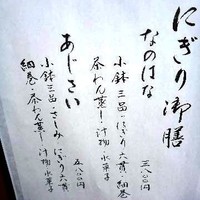 にぎり御膳
なのはな
小鉢三品・にぎり六貫・細巻
茶わん蒸し・汁物・水菓子
三、八〇〇
あじさい
小鉢三品・さしみ・にぎり六貫
細巻・茶わん蒸し・汁物・水菓子
五、八〇〇